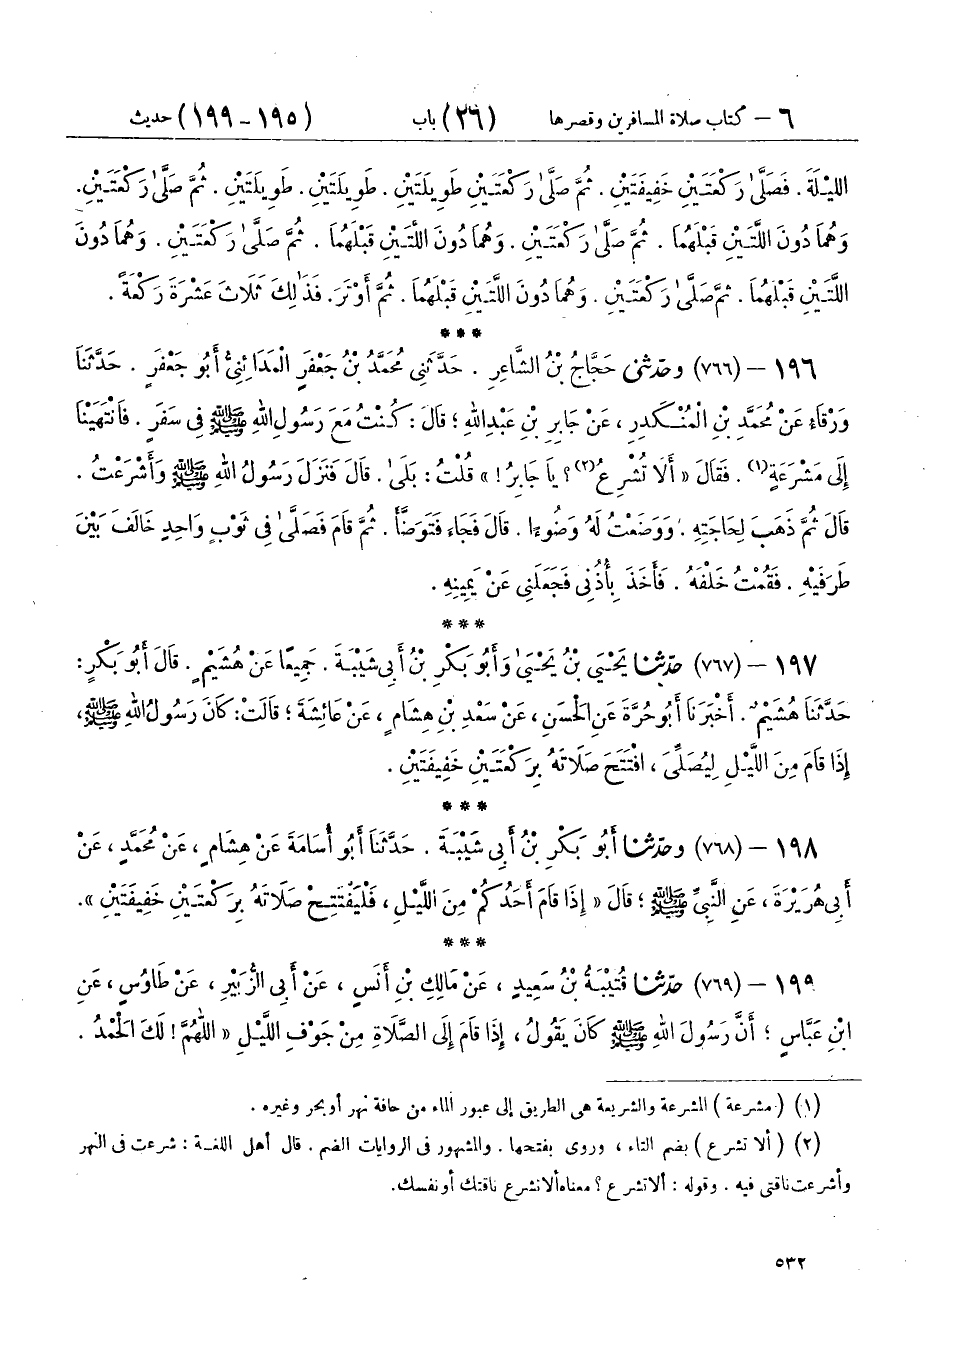 ٦ – كتاب صلاة المسافرين وقصرها (٢٦) باب (١٩٥ – ١٩٩) حديث
اللَّيْلَةَ . فَصَلَّىٰ رَكْعَتَيْنِ خَفِيفَتَيْنِ . ثُمَّ صَلَّىٰ رَكْعَتَيْنِ طَوِيلَتَيْنِ . طَوِيلَتَيْنِ . طَوِيلَتَيْنِ . ثُمَّ صَلَّىٰ رَكْعَتَيْنِ .
وَهُمَا دُونَ اللَّتَيْنِ قَبْلَهُمَا . ثُمَّ صَلَّىٰ رَكْعَتَيْنِ . وَهُمَا دُونَ اللَّتَيْنِ قَبْلَهُمَا . ثُمَّ صَلَّىٰ رَكْعَتَيْنِ . وَهُمَا دُونَ
اللَّتَيْنِ قَبْلَهُمَا . ثُمَّ صَلَّىٰ رَكْعَتَيْنِ . وَهُمَا دُونَ اللَّتَيْنِ قَبْلَهُمَا . ثُمَّ أَوْتَرَ. فَذَٰلِكَ ثَلَاثَ عَشْرَةَ رَكْعَةً .
* * *
١٩٦ – (٧٦٦) وحدّثنى حَجَّاجُ بْنُ الشَّاعِرِ . حَدَّثَنِي مُحَمَّدُ بْنُ جَعْفَرٍ الْمَدَائِنِيُّ أَبُو جَعْفَرٍ . حَدَّثَنَا
وَرْقَاءُ عَنْ مُحَمَّدِ بْنِ الْمُنْكَدِرِ ، عَنْ جَابِرِ بْنِ عَبْدِ اللهِ ؛ قَالَ : كُنْتُ مَعَ رَسُولِ اللهِ ﷺ فِي سَفَرٍ . فَانْتَهَيْنَا
إِلَى مَشْرَعَةٍ (١) . فَقَالَ « أَلَا تُشْرِعُ (٢) ؟ يَا جَابِرُ ! » قُلْتُ : بَلَىٰ . قَالَ فَنَزَلَ رَسُولُ اللهِ ﷺ وَأَشْرَعْتُ .
قَالَ ثُمَّ ذَهَبَ لِحَاجَتِهِ . وَوَضَعْتُ لَهُ وَضُوءًا . قَالَ فَجَاءَ فَتَوَضَّأَ . ثُمَّ قَامَ فَصَلَّىٰ فِي ثَوْبٍ وَاحِدٍ خَالَفَ بَيْنَ
طَرَفَيْهِ . فَقُمْتُ خَلْفَهُ . فَأَخَذَ بِأُذُنِي فَجَعَلَنِي عَنْ يَمِينِهِ .
* * *
١٩٧ – (٧٦٧) حدّثنا يَحْيَى بْنُ يَحْيَىٰ وَأَبُو بَكْرِ بْنُ أَبِي شَيْبَةَ . جَمِيعًا عَنْ هُشَيْمٍ . قَالَ أَبُو بَكْرٍ :
حَدَّثَنَا هُشَيْمٌ . أَخْبَرَنَا أَبُو حُرَّةَ عَنِ الْحَسَنِ ، عَنْ سَعْدِ بْنِ هِشَامٍ ، عَنْ عَائِشَةَ ؛ قَالَتْ : كَانَ رَسُولُ اللهِ ﷺ ،
إِذَا قَامَ مِنَ اللَّيْلِ لِيُصَلِّيَ ، افْتَتَحَ صَلَاتَهُ بِرَكْعَتَيْنِ خَفِيفَتَيْنِ .
* * *
١٩٨ – (٧٦٨) وحدّثنا أَبُو بَكْرِ بْنُ أَبِي شَيْبَةَ . حَدَّثَنَا أَبُو أُسَامَةَ عَنْ هِشَامٍ ، عَنْ مُحَمَّدٍ ، عَنْ
أَبِي هُرَيْرَةَ ، عَنِ النَّبِيِّ ﷺ ؛ قَالَ « إِذَا قَامَ أَحَدُكُمْ مِنَ اللَّيْلِ ، فَلْيَفْتَتِحْ صَلَاتَهُ بِرَكْعَتَيْنِ خَفِيفَتَيْنِ » .
* * *
١٩٩ – (٧٦٩) حدّثنا قُتَيْبَةُ بْنُ سَعِيدٍ ، عَنْ مَالِكِ بْنِ أَنَسٍ ، عَنْ أَبِي الزُّبَيْرِ ، عَنْ طَاوُسٍ ، عَنِ
ابْنِ عَبَّاسٍ ؛ أَنَّ رَسُولَ اللهِ ﷺ كَانَ يَقُولُ ، إِذَا قَامَ إِلَى الصَّلَاةِ مِنْ جَوْفِ اللَّيْلِ « اللَّهُمَّ ! لَكَ الْحَمْدُ .
(١) ( مشرعة ) المشرعة والشريعة هى الطريق إلى عبور الماء من حافة نهر أو بحر وغيره .
(٢) ( ألا تشرع ) بضم التاء ، وروى بفتحها . والمشهور فى الروايات الضم . قال أهل اللغة : شرعت فى النهر
وأشرعت ناقتى فيه . وقوله : ألا تشرع ؟ معناه ألا تشرع ناقتك أو نفسك.
٥٣٢